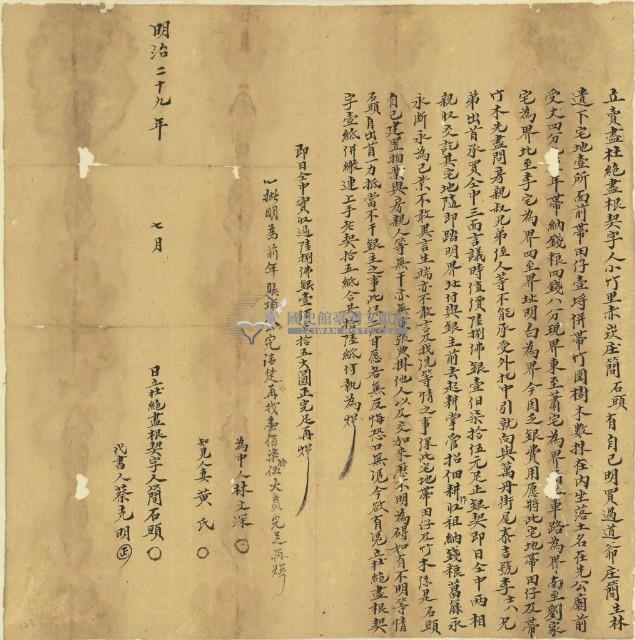 立賣盡杜絕盡根契字人小竹里赤崁庄簡石頭有自己明買過道爺庄簡主林
遺下宅地壹所面前帶田仔壹坵併帶竹圍樹木數抹在內坐落土名在先公廟前
受丈四分九年帶納錢粮四錢八分現界東至蕭宅為界西至車路為界南至劉家
宅為界北至李宅為界四至界址明白為界今因乏銀費用愿將此宅地帶田仔及帶
竹木先盡問房親叔兄弟侄人等不能承受外托中引就向與萬丹街尾泰吉號李士八兄
弟出首承買仝中三面言議時值價陸捌佛銀壹佰柒拾伍元足正銀契即日仝中兩相
親收交訖其宅地隨即踏明界址付與銀主前去起耕掌管招佃耕作收租納錢粮葛藤永
永斷永為己業不敢異言生端亦不敢言及找洗等情之事保此宅地帶田仔及竹木係是石頭
自己建置物業與房親人等無干亦無重張典掛他人以及交加來歷不明為碍如有不明等情
石頭自出首一力抵當不干銀主之事此係自愿各無反悔恐口無憑今欲有憑立杜絕盡根契
字壹紙併繳連上手老契拾五紙合共拾陸紙付執為炤
即日仝中實收過陸捌佛銀壹佰柒拾五大圓正完足再炤
一批明為前年賬項完清楚再找壹佰柒拾伍大員完足再炤
為中人林文深
知見人妻黃氏
日立杜絕盡根契字人簡石頭
代書人蔡克明
明治二十九年
七月
國史館臺灣文獻館
TAIWAN HISTORICA
123